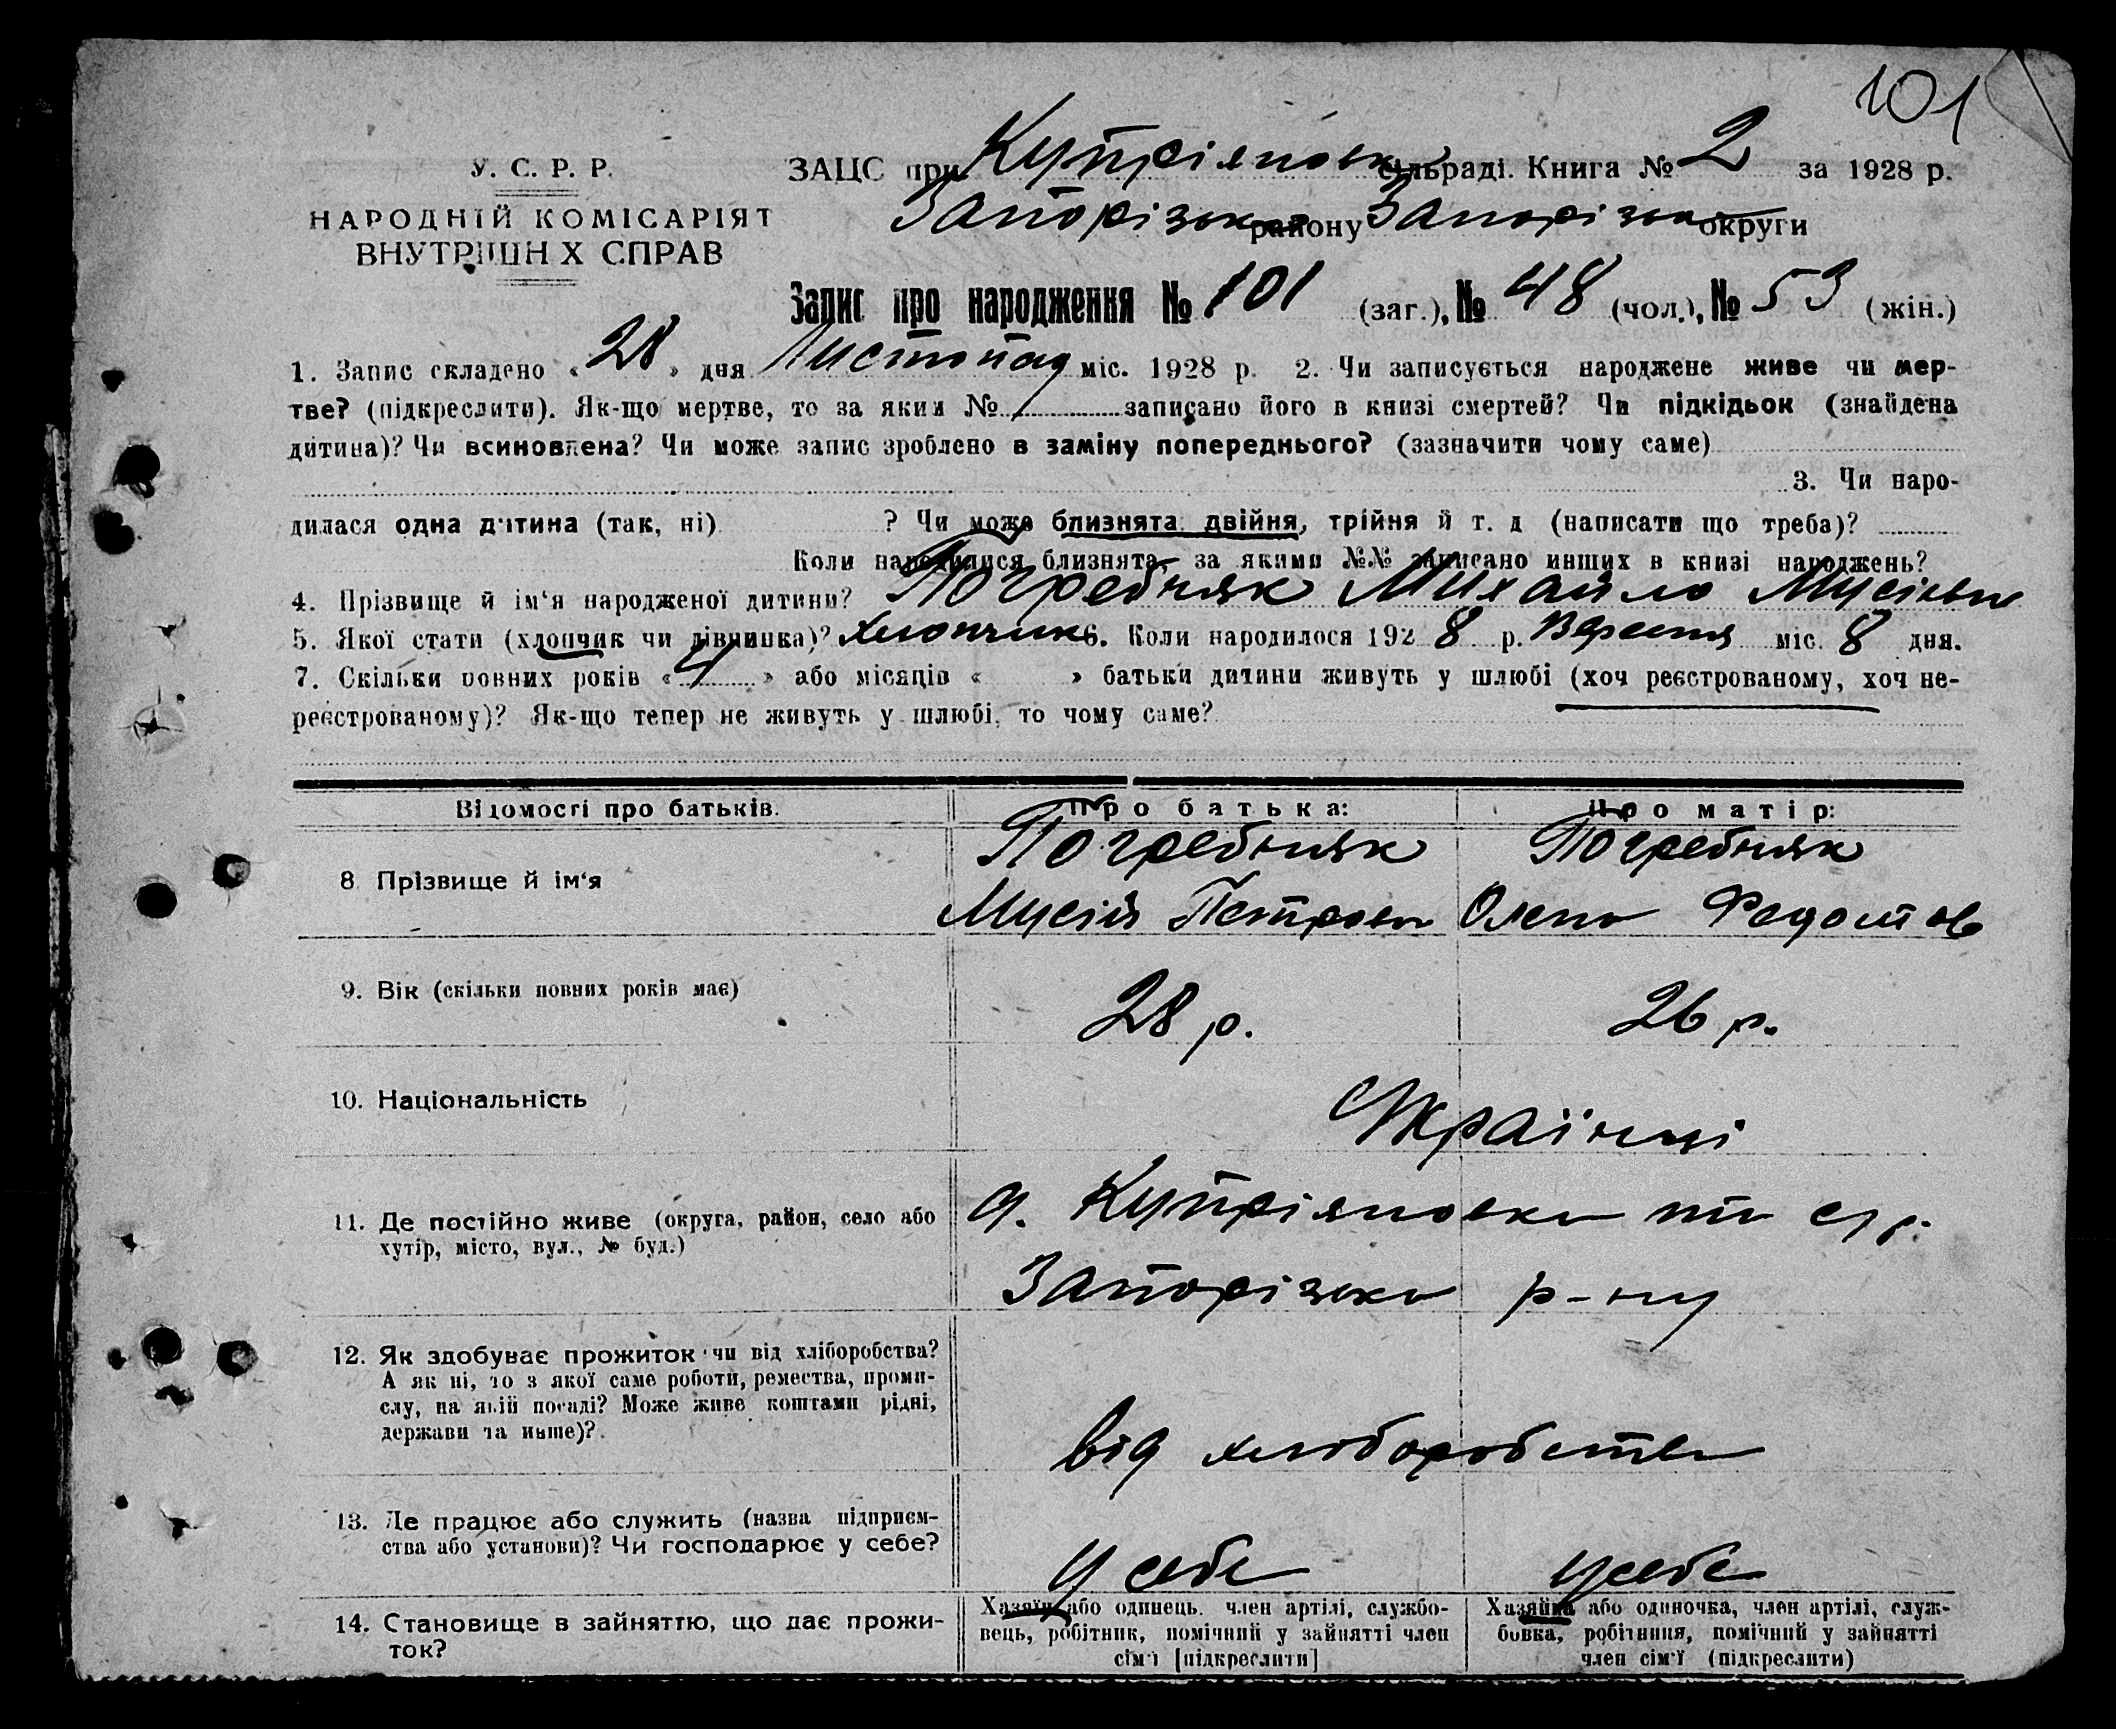 101
У. С. Р. Р.
НАРОДНІЙ КОМІСАРІЯТ
ВНУТРІШН Х СПРАВ
ЗАЦС при Купріяновськ сільраді. Книга № 2 за 1928 р.
Запорізьк району Запорізьк округи
Запис про народження № 101 (заг.), № 48 (чол.), № 53 (жін.)
1. Запис складено « 28 » дня Листопад міс. 1928 р. 2. Чи записується народжене живе чи мер-
тве? (підкреслити). Як-що мертве, то за яким № записано його в книзі смертей? Чи підкідьок (знайдена
дитина)? Чи всиновлена? Чи може запис зроблено в заміну попереднього? (зазначити чому саме)
3. Чи наро-
дилася одна дитина (так, ні) ? Чи може близнята: двійня, трійня й т. д (написати що треба)?
Коли народилися близнята, за якими №№ записано инших в книзі народжень?
4. Прізвище й ім‘я народженої дитини? Погребняк Михайло Мусієвич
5. Якої стати (хлопчик чи дівчинка)? хлопчик 6. Коли народилося 1928 р. Вересня міс. 8 дня.
7. Скільки повних років « 4 » або місяців « » батьки дитини живуть у шлюбі (хоч реєстрованому, хоч не-
реєстрованому)? Як-що тепер не живуть у шлюбі, то чому саме?
Відомості про батьків. Про батька: Про матір:
8 Прізвище й ім‘я Погребняк Погребняк
Мусій Петрович Олена Федотов
9. Вік (скільки повних років має) 28 р. 26 р.
10. Національність Українці
11. Де постійно живе (округа, район, село або
хутір, місто, вул., № буд.)
Купріяновка
Запорізьк р-ну
12. Як здобуває прожиток чи від хліборобства?
А як ні, то з якої саме роботи, ремества, проми-
слу, на якій посаді? Може живе коштами рідні,
держави та инше)?
від хліборобства
13. Де працює або служить (назва підприєм-
ства або установи)? Чи господарює у себе?
у себе у себе
14. Становище в зайняттю, що дає прожи-
ток?
Хазяїн або одинець, член артілі, службо-
вець, робітник, помічний у зайнятті член
сім‘ї [підкреслити]
Хазяйка або одиночка, член артілі, служ-
бовка, робітниця, помічний у зайнятті
член сім‘ї (підкреслити)